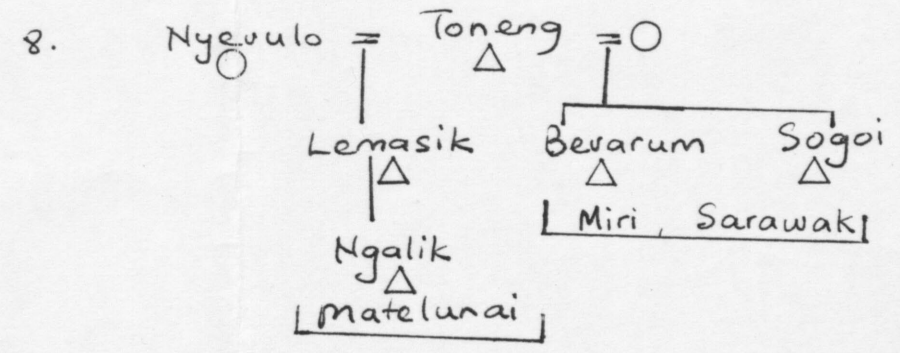 8. Nyevulo = Toneng =
Lemasik Bevarum Sogoi
Miri, Sarawak
Ngalik
Matelunai